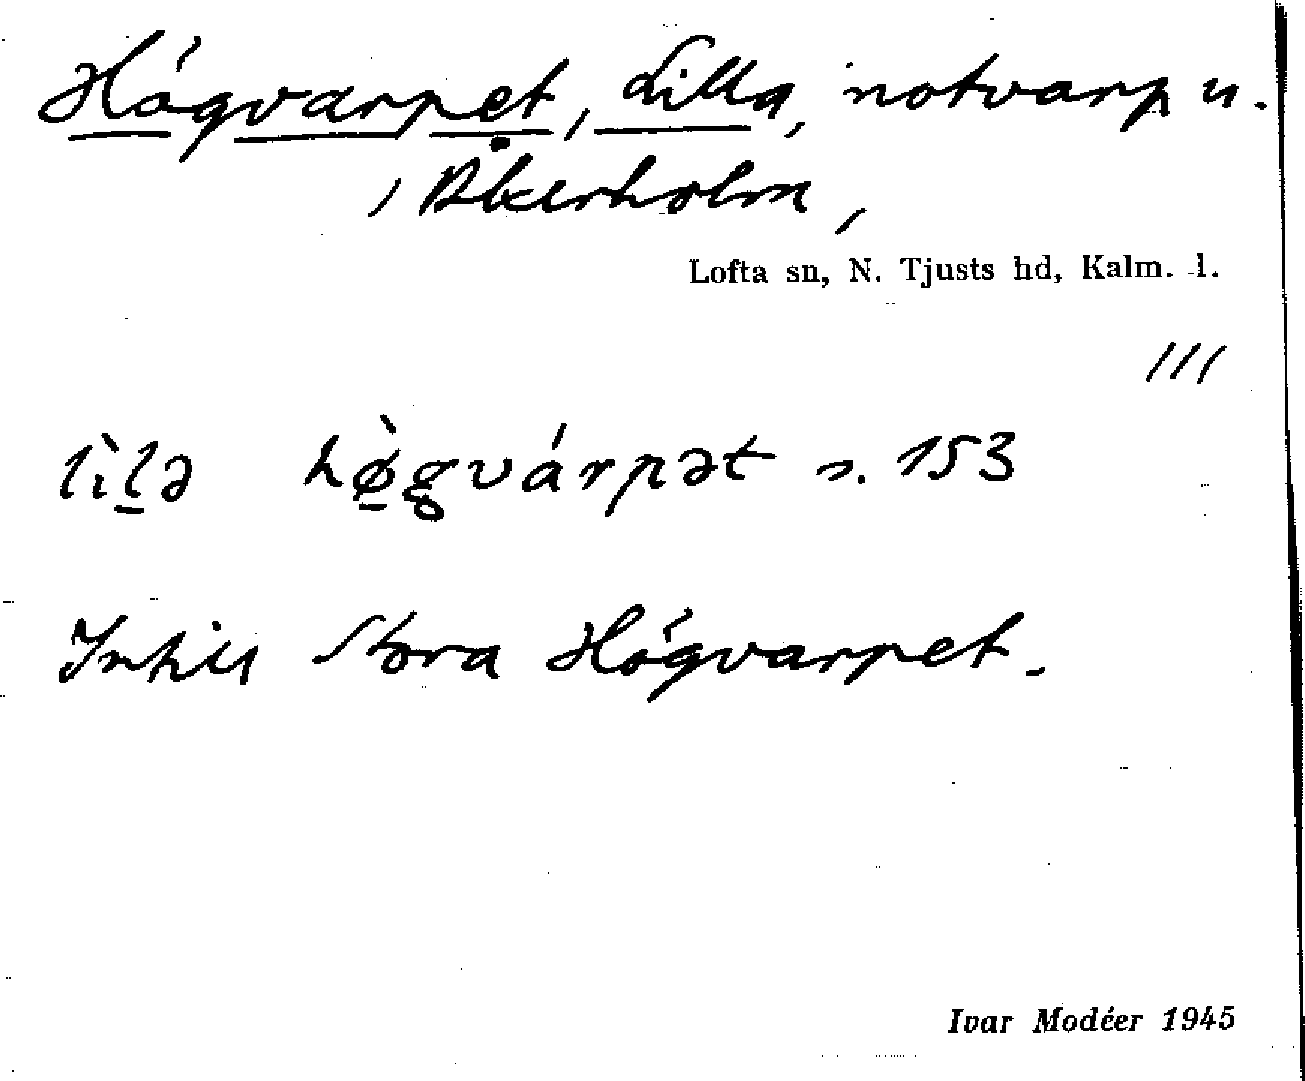 Högvarpet, Lilla, notvarp u.
/ Åkerholm,
Lofta sn, N. Tjusts hd, Kalm. l.
///
lìlə hø̀gvárpət s. 153
Intill Stora Högvarpet.
Ivar Modéer 1945